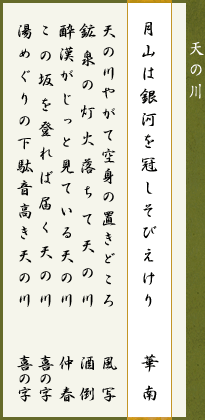 天の川
月山は銀河を冠しそびえけり　華南
天の川やがて空身の置きどころ　風写
鉱泉の灯火落ちて天の川　酒倒
酔漢がじっと見ている天の川　仲春
この坂を登れば届く天の川　喜の字
湯めぐりの下駄音高き天の川　喜の字